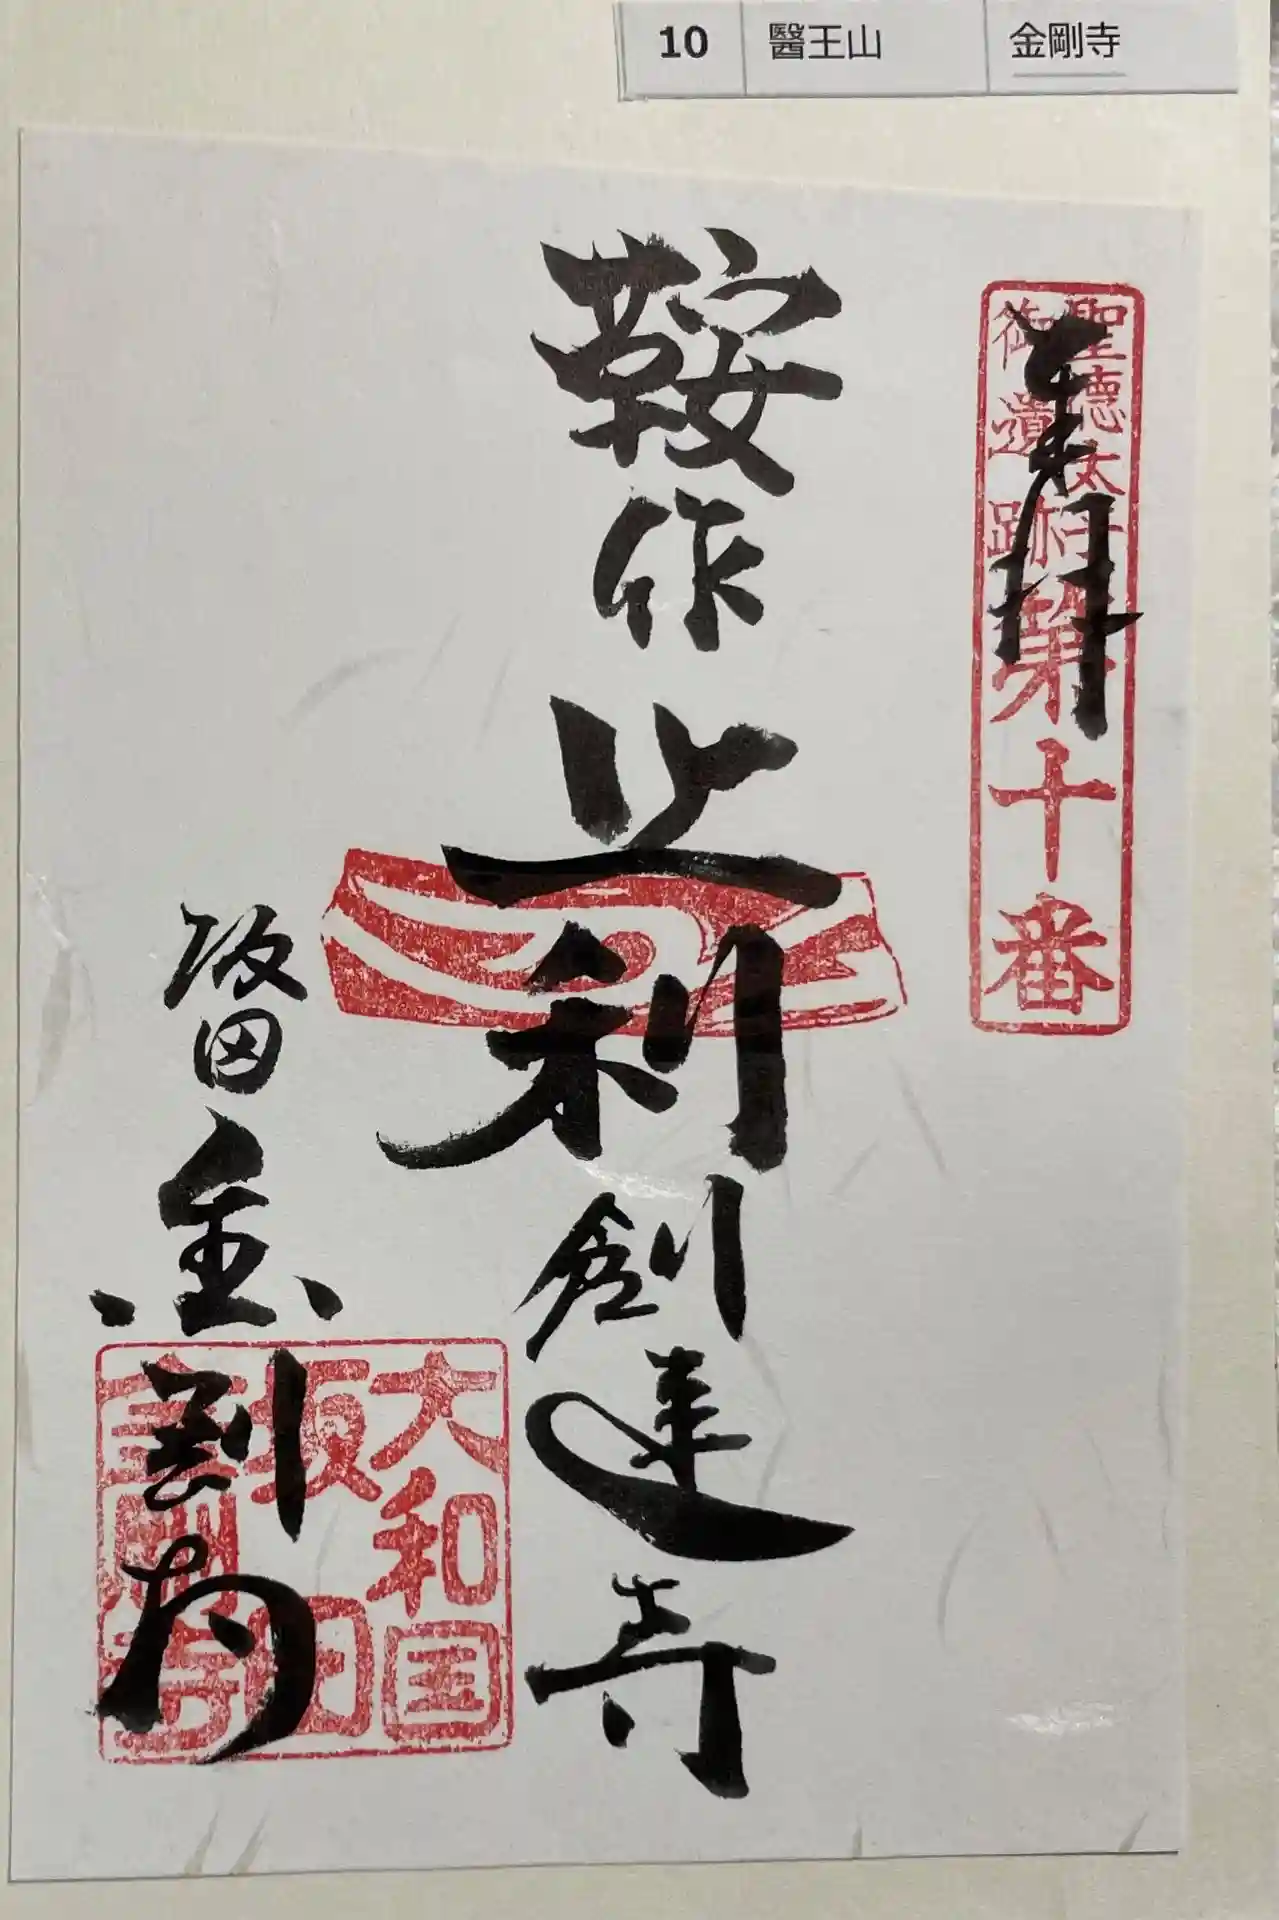 10 醫王山 金剛寺
奉拝
聖徳太子
御遺跡
第十番
鞍作止利創建寺
坂田金剛寺
大和国
坂田
金剛寺